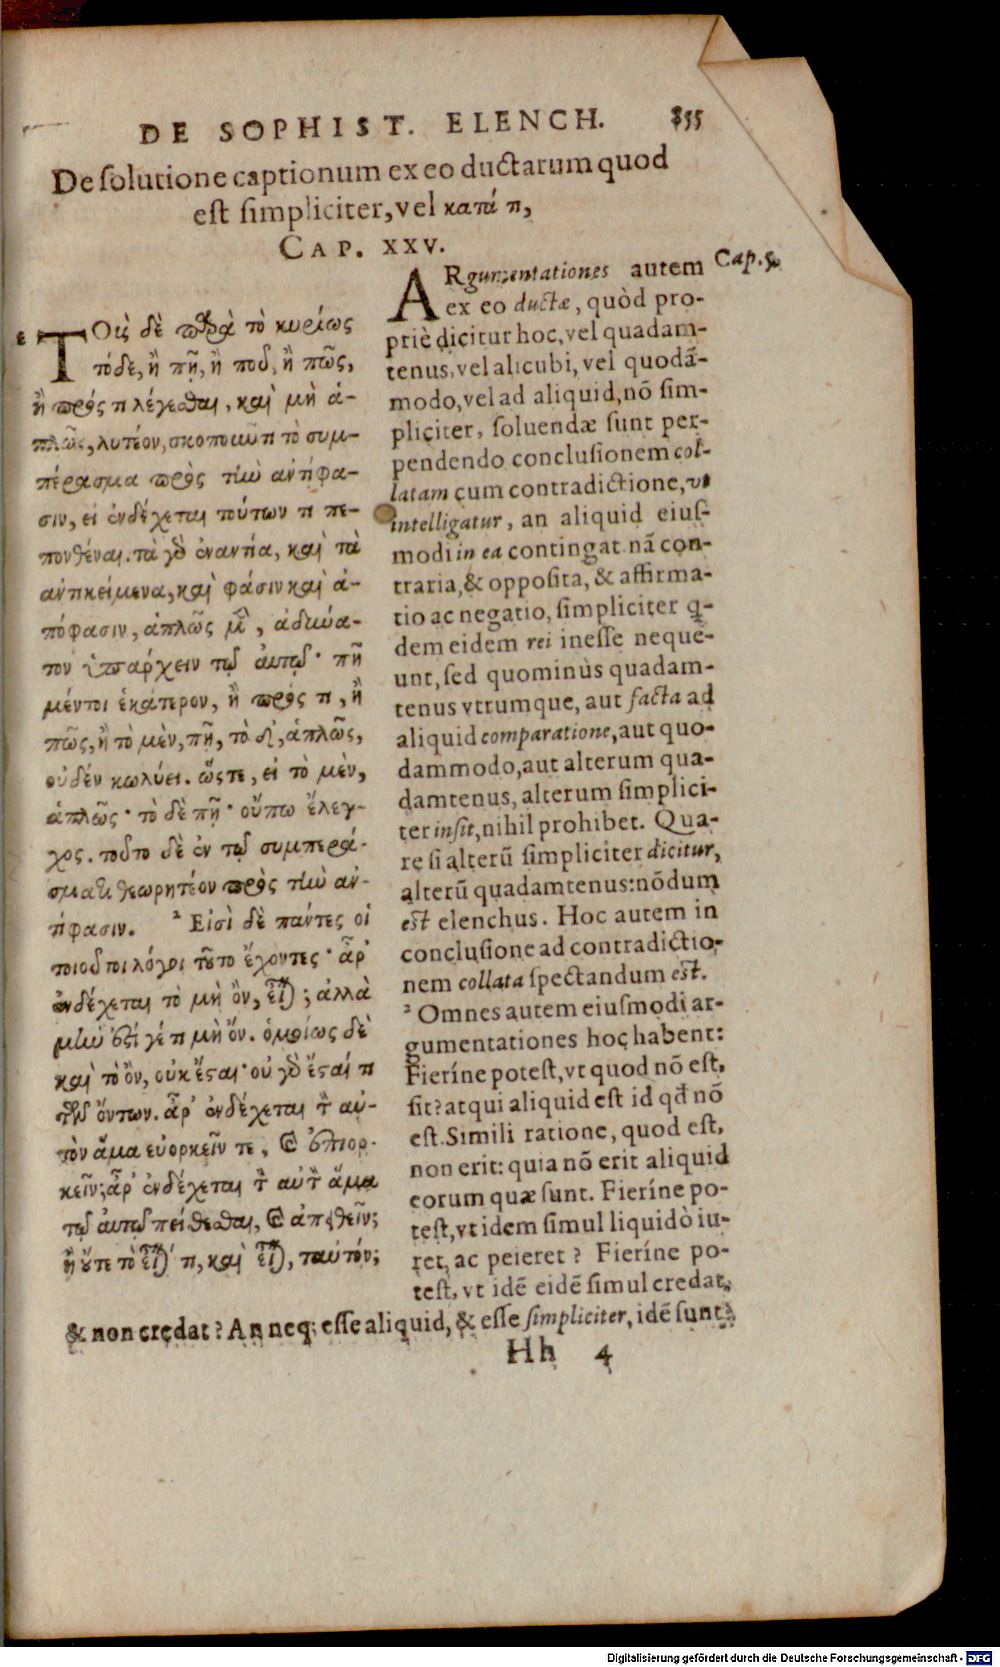 DE SOPHIST. ELENCH. 855
De solutione captionum ex eo ductarum quod
est simpliciter, vel κατά τι,
CAP. XXV.
1 ΤΟῖς δὲ παρὰ τὸ κυρίως
τόδε, ἢ πῇ, ἢ ποῦ, ἢ πῶς,
ἢ πρός τι λέγεσθαι, καὶ μὴ ἁ-
πλῶς, λυτέον, σκοποῦντι τὸ συμ-
πέρασμα πρὸς τὴν ἀντίφα-
σιν, εἰ ἐνδέχεται τούτων τι πε-
πονθέναι. τὰ γὸ ἐναντία, καὶ τὰ
ἀντικείμενα, καὶ φάσιν καὶ ἀ-
πόφασιν, ἁπλῶς μ̂, ἀδύνα-
τον ὑπάρχειν τῷ αὐτῷ· πῇ
μέντοι ἑκάτερον, ἢ πρός τι, ἢ
πῶς, ἢ τὸ μὲν, πῇ, τὸ δ', ἁπλῶς,
οὐδέν κωλύει. ὥστε, εἰ τὸ μὲν,
ἁπλῶς· τὸ δὲ πῇ· οὔπω ἔλεγ-
χος. τοῦτο δὲ ἐν τῷ συμπερά-
σματι θεωρητέον πρὸς τὴν ἀν-
τίφασιν. 2 Εἰσὶ δὲ πάντες οἱ
τοιοῦτοι λόγοι τοῦτο ἔχοντες· ἆρ'
ἐνδέχεται τὸ μὴ ὂν, εἶναι; ἀλλὰ
μὴν ἐστί γέ τι μὴ ὄν. ὁμοίως δὲ
καὶ τὸ ὂν, οὐκ ἔσται· οὐ γὸ ἔσται τι
τῶν ὄντων. ἆρ' ἐνδέχεται τὸν αὐ-
τὸν ἅμα εὐορκεῖν τε, καὶ ἐπιορ-
κεῖν; ἆρ' ἐνδέχεται τὸν αὐτὸν ἅμα
τῷ αὐτῷ πείθεσθαι, καὶ ἀπειθεῖν;
ἢ οὔτε τὸ εἶναί τι, καὶ εἶναι, ταὐτόν;
ARgumentationes autem Cap. 5.
ex eo ductæ, quòd pro-
priè dicitur hoc, vel quadam-
tenus, vel alicubi, vel quodā-
modo, vel ad aliquid, nō sim-
pliciter, soluendæ sunt per-
pendendo conclusionem col-
latam cum contradictione, vt
intelligatur, an aliquid eius-
modi in ea contingat. nā con-
traria, & opposita, & affirma-
tio ac negatio, simpliciter q̄-
dem eidem rei inesse neque-
unt, sed quominùs quadam-
tenus vtrumque, aut facta ad
aliquid comparatione, aut quo-
dammodo, aut alterum qua-
damtenus, alterum simplici-
ter insit, nihil prohibet. Qua-
re si alterū simpliciter dicitur,
alterū quadamtenus: nōdum
est elenchus. Hoc autem in
conclusione ad contradictio-
nem collata spectandum est.
2 Omnes autem eiusmodi ar-
gumentationes hoc habent:
Fieríne potest, vt quod nō est,
sit? atqui aliquid est id qđ nō
est. Simili ratione, quod est,
non erit: quia nō erit aliquid
eorum quæ sunt. Fieríne po-
test, vt idem simul liquidò iu-
ret, ac peieret? Fieríne po-
test, vt idē eidē simul credat,
& non credat? An neq; esse aliquid, & esse simpliciter, idē sunt?
Hh 4
Digitalisierung gefördert durch die Deutsche Forschungsgemeinschaft - DFG